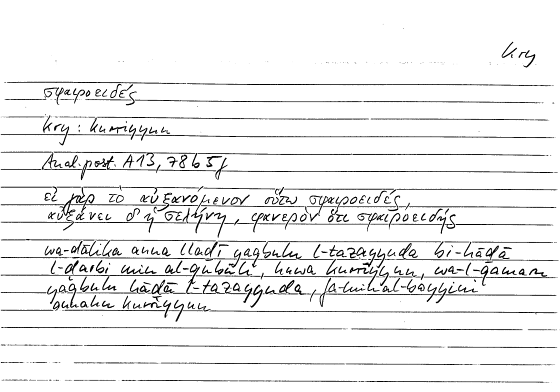 kry
σφαιροειδές
kry : kurrīyyun
Anal. post. A 13, 78 b 5 f
εἰ γὰρ τὸ αὐξανόμενον οὕτω σφαιροειδές,
αὐξάνει δ' ἡ σελήνη, φανερὸν ὅτι σφαιροειδής
wa-ḏālika anna lladī yaqbalu l-tazayyuda bi-hāḏā
l-ḍarbi min al-qubūli, huwa kurrīyyun, wa-l-qamaru
yaqbalu hāḏā l-tazayyuda, fa-min al-bayyini
annahu kurrīyyun